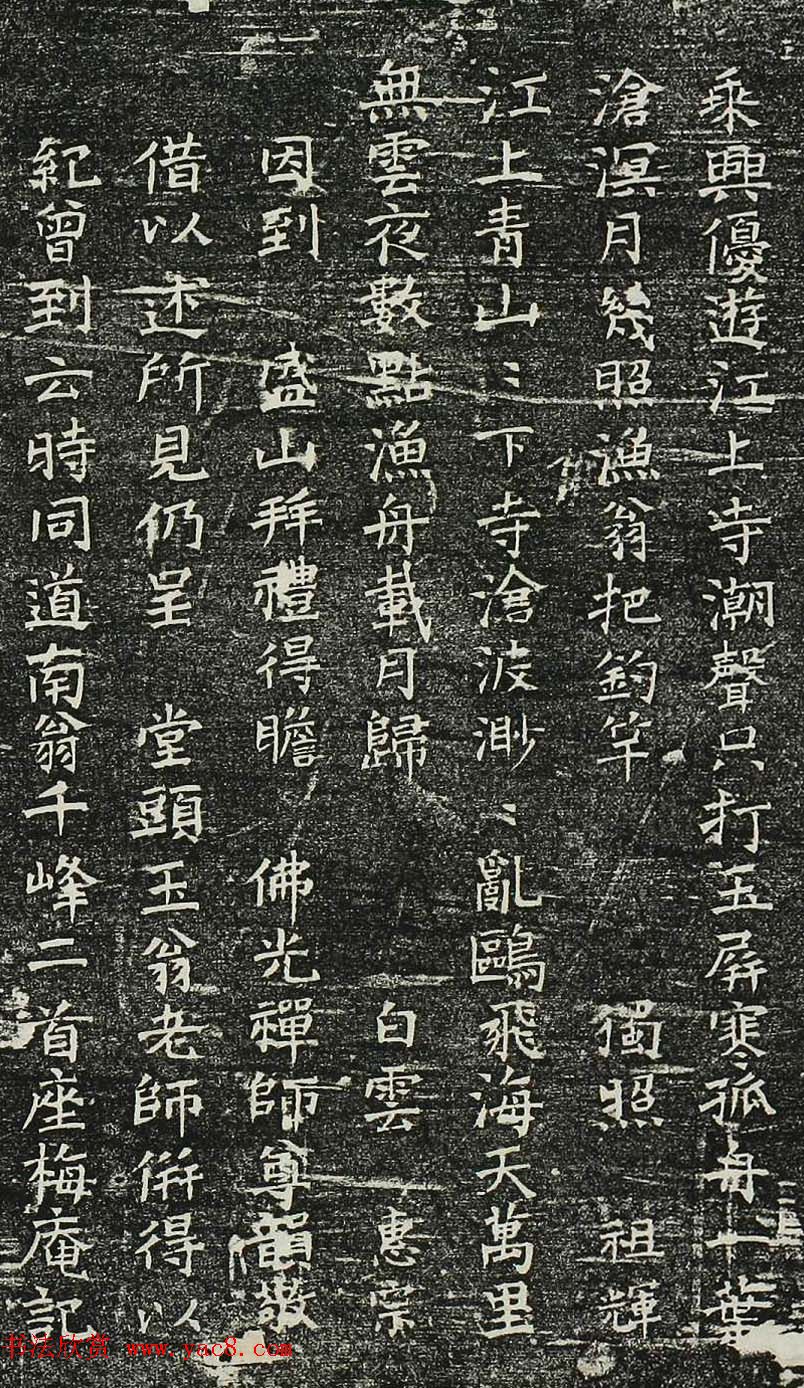 乘興優遊江上寺潮聲只打玉屏寒孤舟一葉
滄溟月幾照漁翁把釣竿 獨照 祖輝
江上青山〻下寺滄波渺〻亂鷗飛海天萬里
無雲夜數點漁舟載月歸 白雲 惠宗
因到 盛山拜禮得瞻 佛光禪師尊韻敬
借以述所見仍呈 堂頭玉翁老師併得以
紀曾到云時同道南翁千峰二首座梅庵記
书法欣赏 www.yac8.com